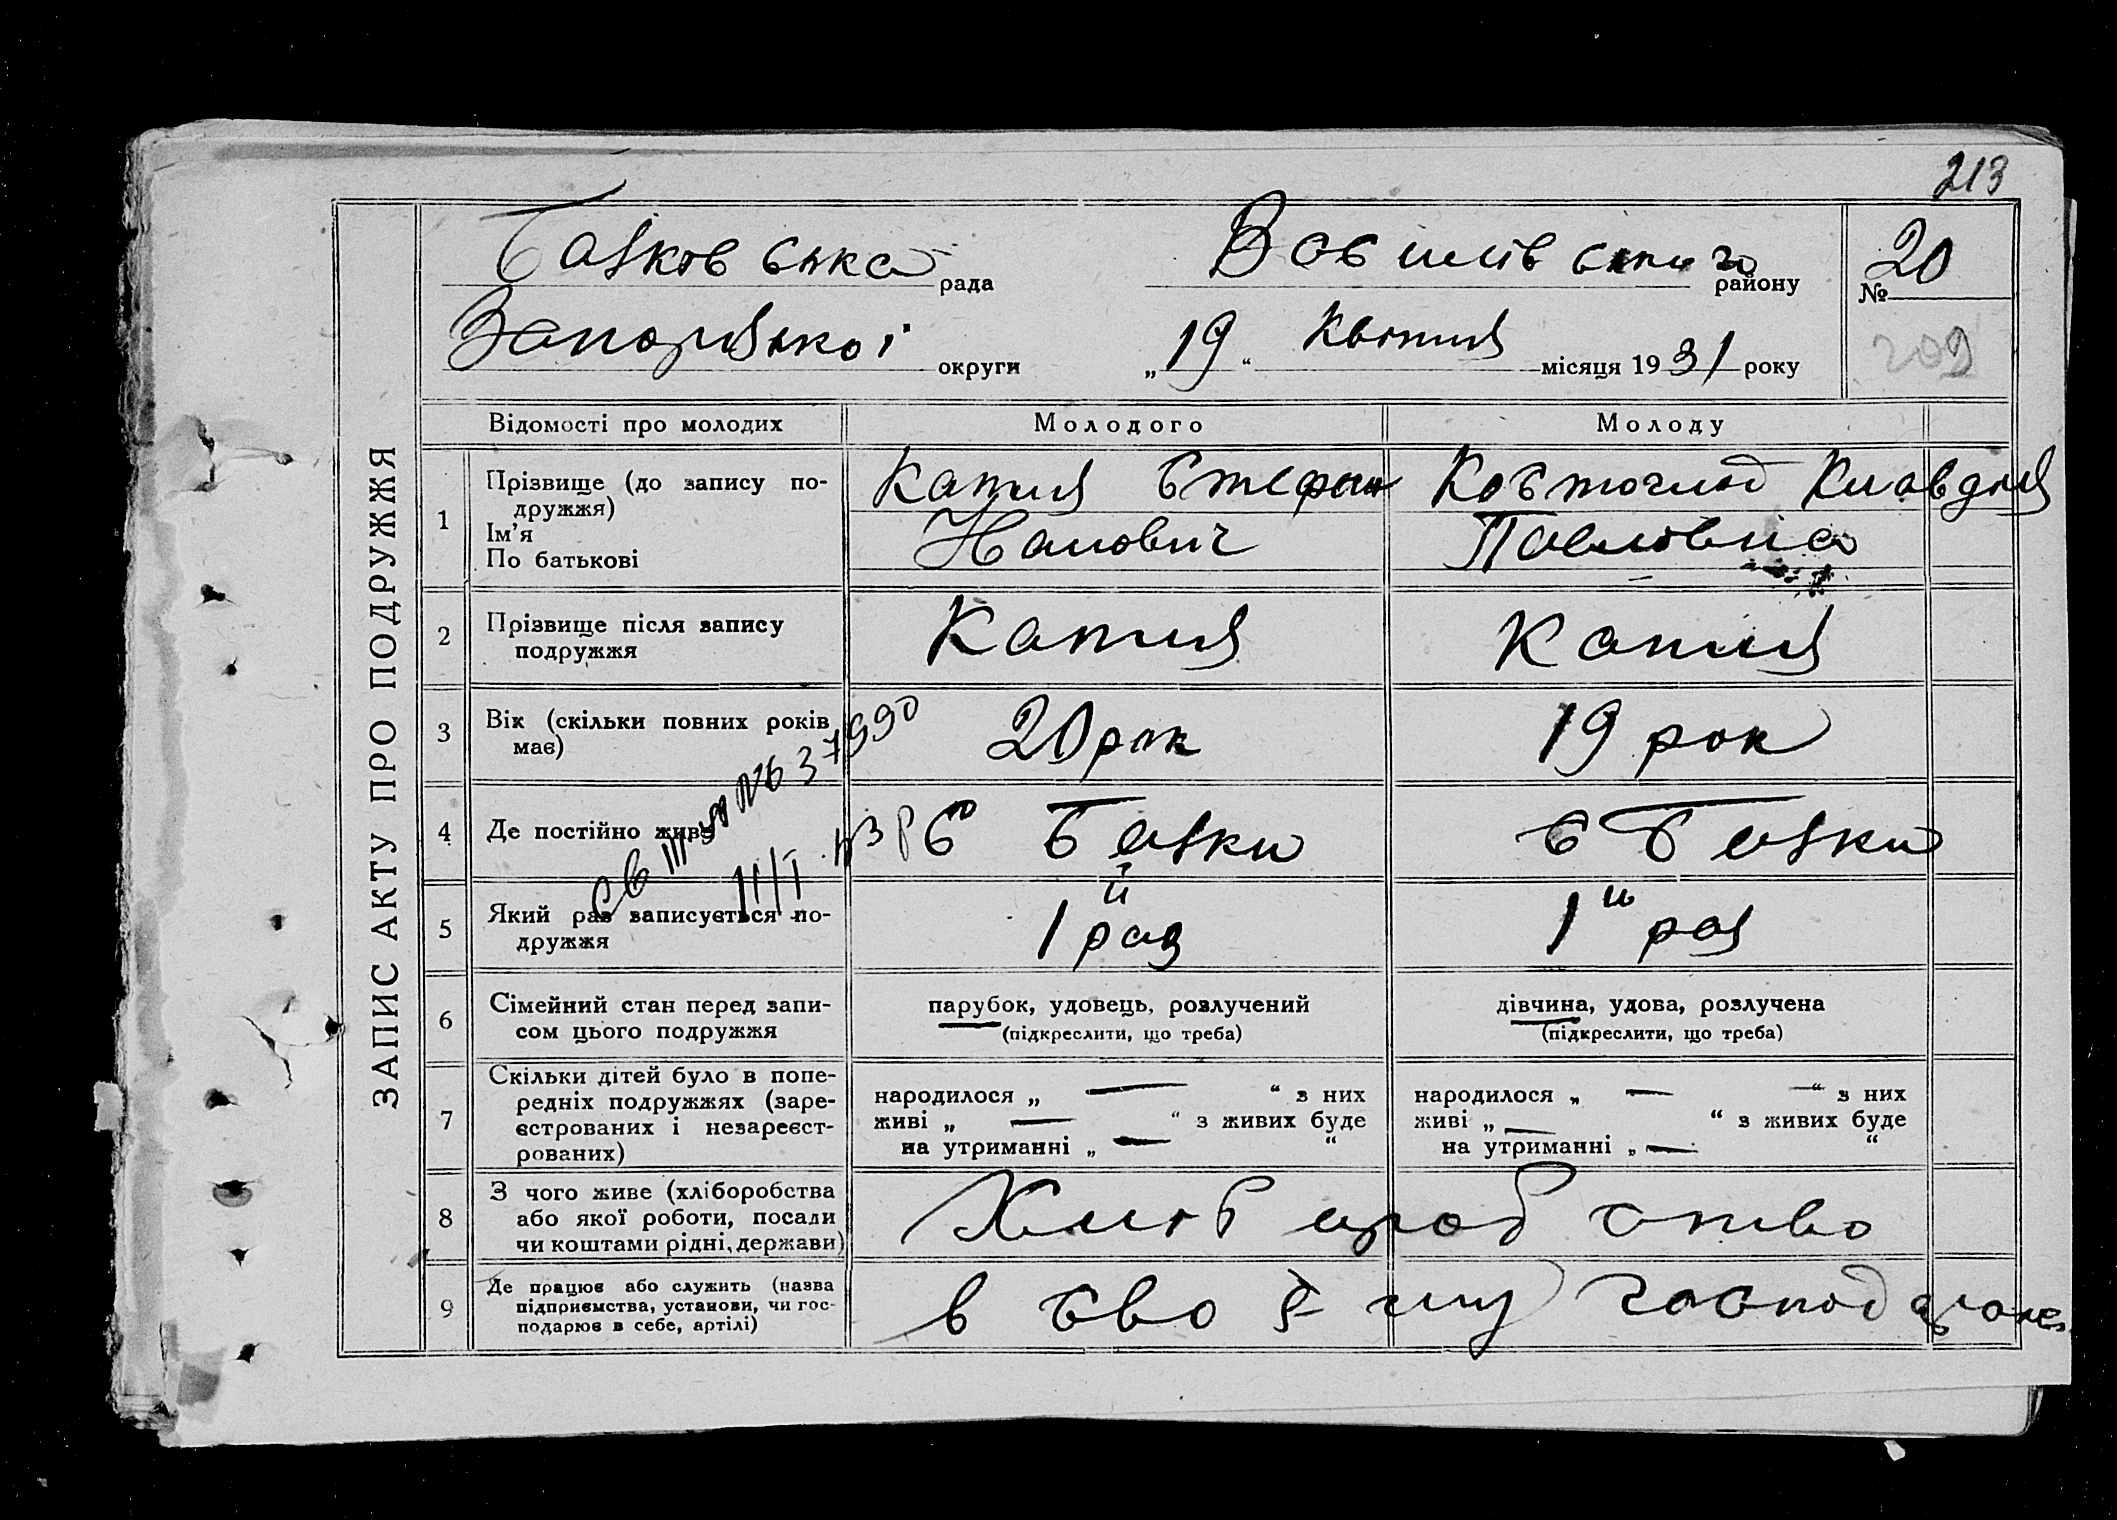 213
Базковська рада Василівського району № 20
Запорізької округи „19“ Квітня місяця 1931 року
209
ЗАПИС АКТУ ПРО ПОДРУЖЖЯ
Відомості про молодих Молодого Молоду
1 Прізвище (до запису по-
дружжя)
Ім’я
По батькові
Капля Стефан
Павловна
2 Прізвище після запису
подружжя
Капля Капля
3 Вік (скільки повних років
має)
20 рок 19 рок
4 Де постійно живе
с Базки с Базки
5 Який раз записується по-
дружжя
1й раз 1й раз
6 Сімейний стан перед запи-
сом цього подружжя
парубок, удовець, розлучений
(підкреслити, що треба)
дівчина, удова, розлучена
(підкреслити, що треба)
7 Скільки дітей було в попе-
редніх подружжях (заре-
єстрованих і незареєст-
рованих)
народилося „ — “ з них
живі „ — “ з живих буде
на утриманні „ — “
народилося „ — “ з них
живі „ — “ з живих буде
на утриманні „ — “
8 З чого живе (хліборобства
або якої роботи, посади
чи коштами рідні, держави)
Хліборобство
9 Де працює або служить (назва
підприємства, установи, чи гос-
подарює в себе, артілі)
в своєму